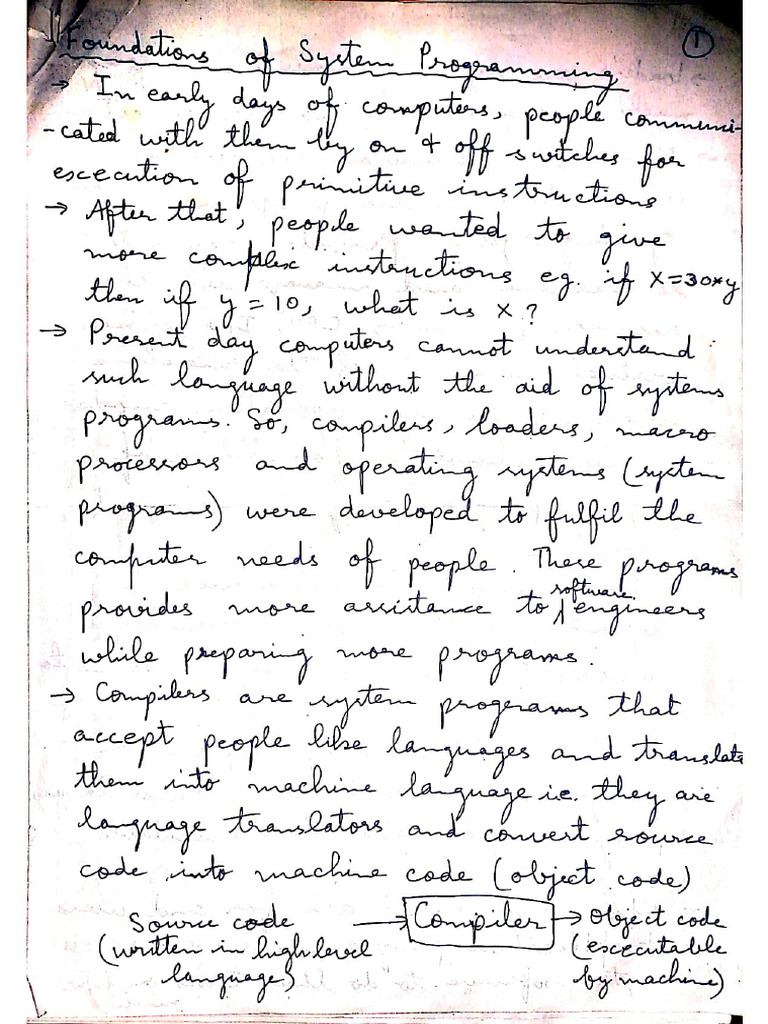 ①
Foundations of System Programming
→ In early days of computers, people communi-
-cated with them by on & off switches for
escecution of primitive instructions
→ After that, people wanted to give
more complex instructions eg. if x=30*y
then if y=10, what is x?
→ Present day computers cannot understand
such language without the aid of systems
programs. So, compilers, loaders, macro
processors and operating systems (system
programs) were developed to fulfil the
computer needs of people. These programs
provides more assistance to software engineers
while preparing more programs.
→ Compilers are system programs that
accept people like languages and translate
them into machine language i.e. they are
language translators and convert source
code into machine code (object code)
Source code → Compiler → Object code
(written in high level (escecutable
language) by machine)